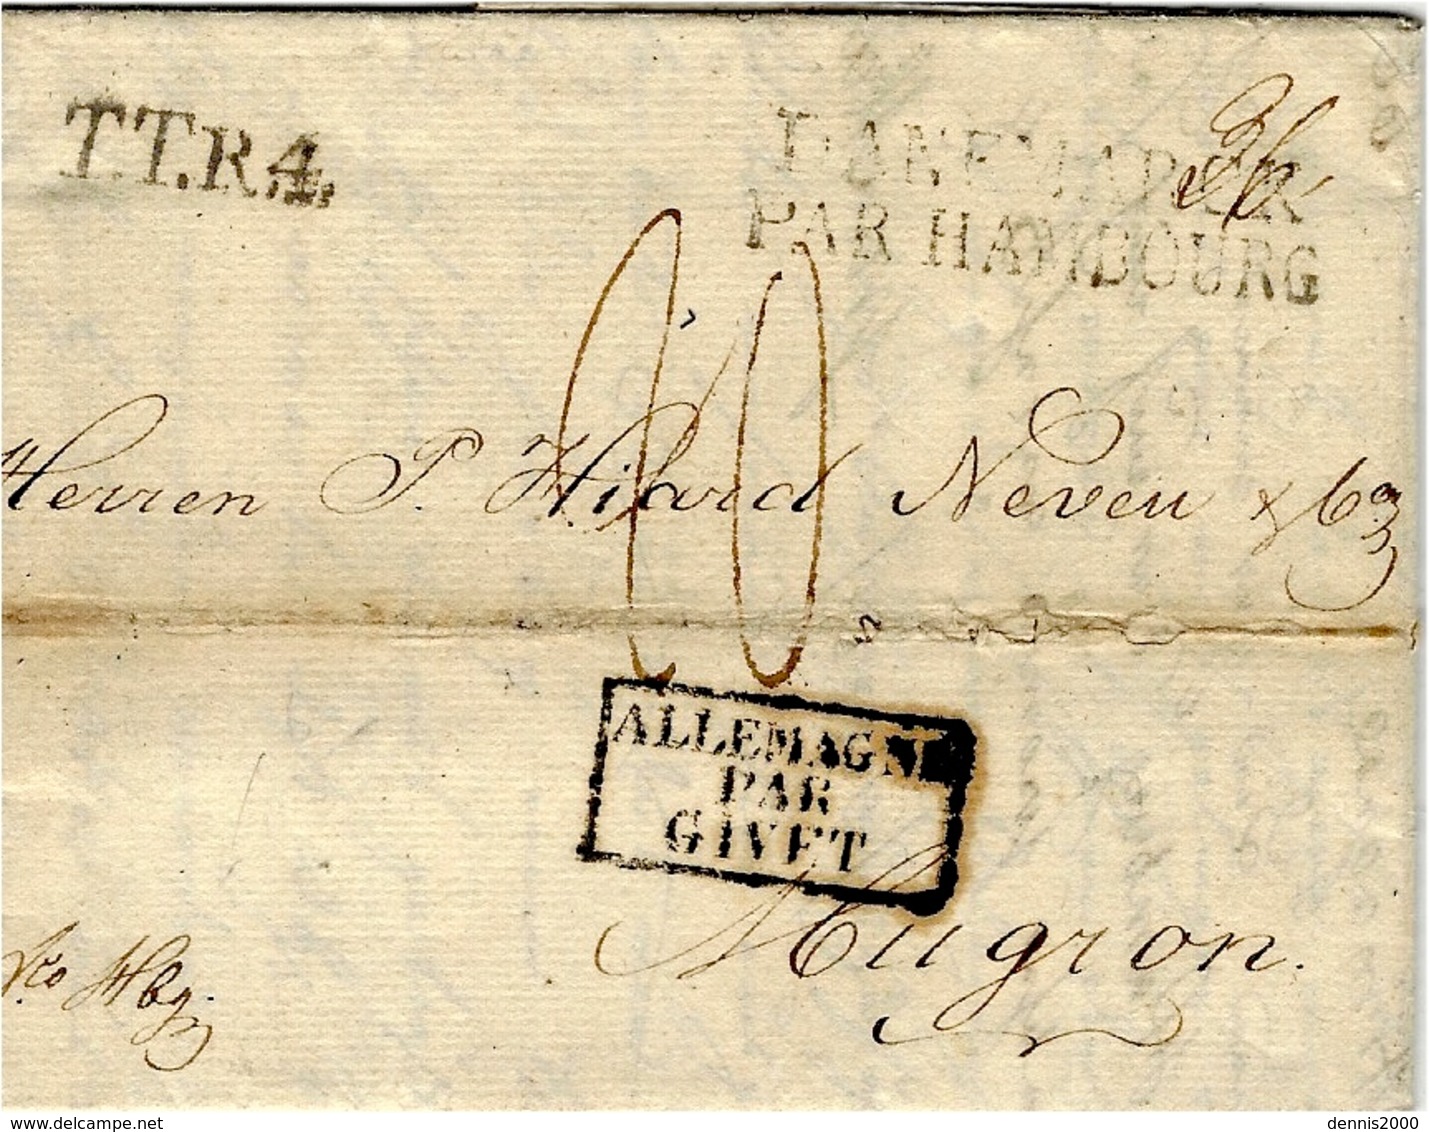 T.T.R.4.
DANEMARCK
PAR HAMBOURG
Herren P. Hilard Neveu & Co
ALLEMAGNE
PAR
GIVET
Mugron.
fco Hbg.
www.delcampe.net
dennis2000